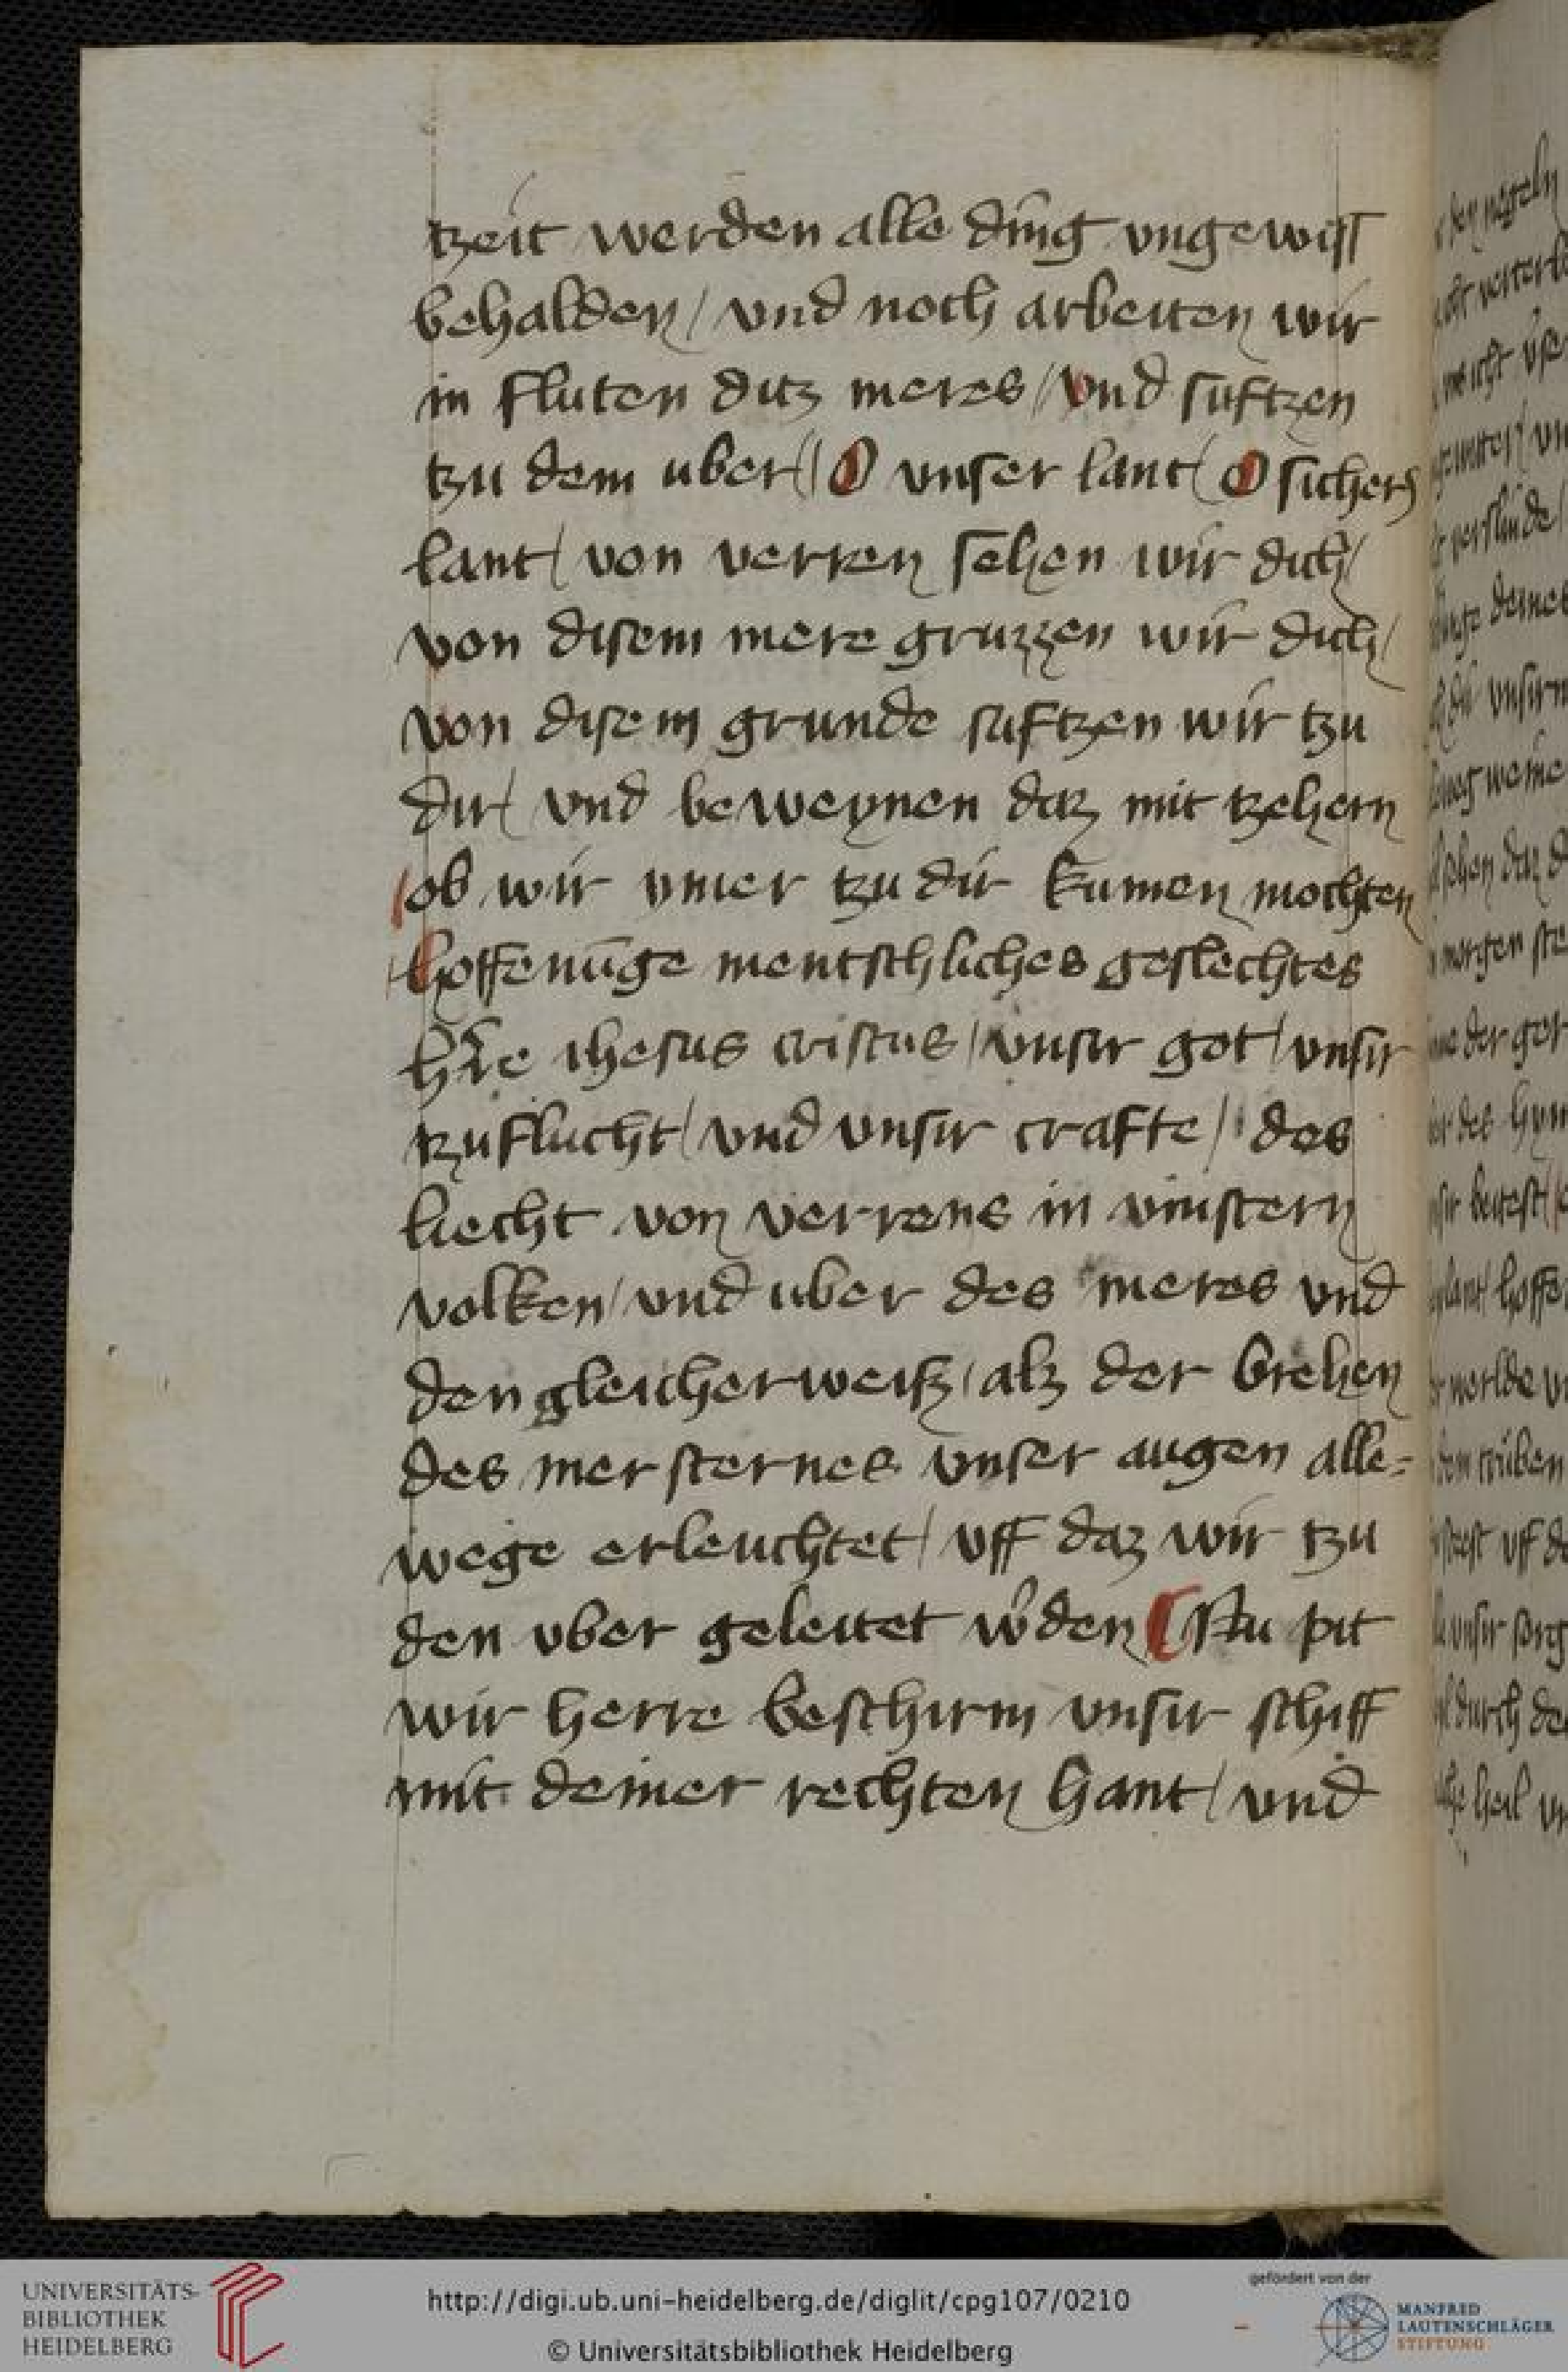 tzeit werden alle ding ungewisß
behalden / vnd noch arbeiten wir
in fluten ditz meres / vnd suftzen
tzu dem uber / O vnser lant / O sichers
lant / von verren sehen wir dich /
von disem mere gruzzen wir dich /
von disem grunde suftzen wir tzu
dir / vnd beweynen daz mit tzehern
/ ob wir ymer tzu dir kumen mochten
hoffenũge mentschliches geslechtes
hr̃e ihesus cristus / vnsir got / vnsir
tzuflucht / vnd vnsir crafte / des
liecht von verrens in vinstern
volken / vnd uber des meres vnd
den gleicherweiß / alz der brehen
des mersternes vnser augen alle-
wege erleuchtet / vff daz wir tzu
den vber geleitet w̾den Nu pit
wir herre beschirm vnsir schiff
mit deiner rechten hant / vnd
UNIVERSITÄTS-
BIBLIOTHEK
HEIDELBERG
http://digi.ub.uni-heidelberg.de/diglit/cpg107/0210
© Universitätsbibliothek Heidelberg
gefördert von der
MANFRED
LAUTENSCHLÄGER
STIFTUNG